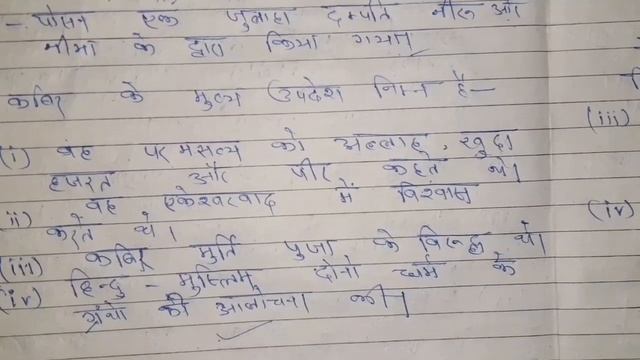 - पोसन एक जुलाहा दम्पति नीरू औ
नीमा के द्वारा किया गया।
कबिर के मुख्य उपदेश निम्न है—
(i) वह परमसत्य को अल्लाह, खुदा
हजरत और पीर कहते थे।
(ii) वह एकेश्वरवाद में विश्वास
करते थे।
(iii) कबिर मुर्ति पुजा के विरूद्ध थे।
(iv) हिन्दु - मुस्लिम दोनो धर्म के
ग्रंथो की आलोचना की।
(iii)
(iv)